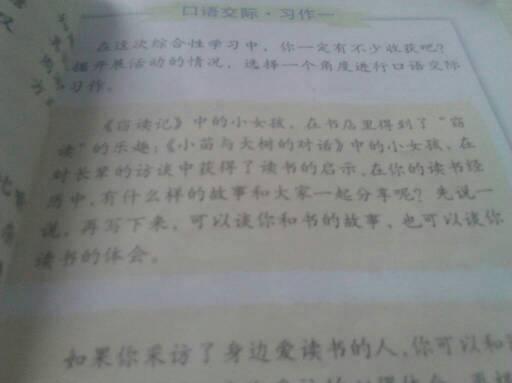 口语交际·习作一
在这次综合性学习中，你一定有不少收获吧？
据开展活动的情况，选择一个角度进行口语交际
习作。
《窃读记》中的小女孩，在书店里得到了“窃
读”的乐趣；《小苗与大树的对话》中的小女孩，在
时长辈的访谈中获得了读书的启示。在你的读书经
历中，有什么样的故事和大家一起分享呢？先说一
说，再写下来，可以谈你和书的故事，也可以谈你
读书的体会。
如果你采访了身边爱读书的人，你可以和